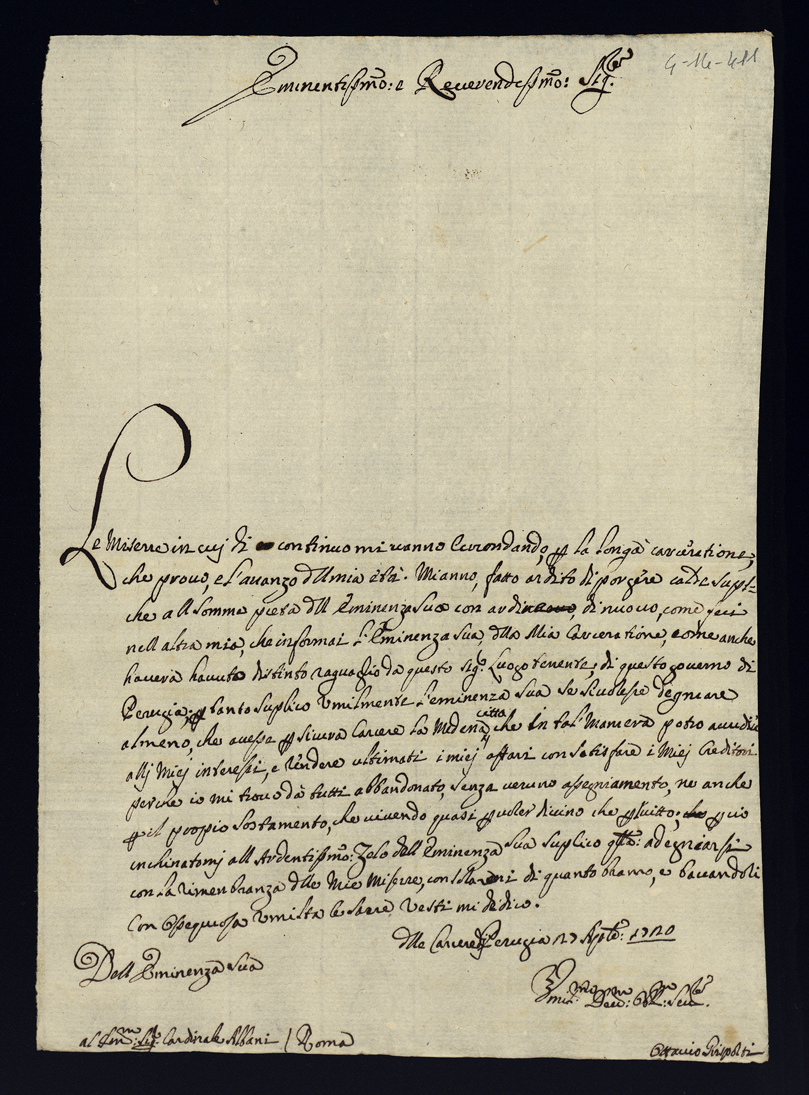 4-14-411
Eminentissmo: e Reverendissmo: Sigre
Le Miserie in cui di continuo mi vanno circondando, p la longa carceratione,
che provo, e l'avanzo d mia età. Mianno, fatto ardito di porgere calde supli-
che all somma pietà dll Eminenza Sua con di nuovo, come feci
nell altra mia, che informai l'Eminenza sua, dlla Mia Carceratione, come anche
haverà havuto distinto raguaglio da questo Sig: Luogo tenente, di questo governo di
Perugia; p tanto suplico umilmente l'eminenza Sua se si degniare
almeno, che avesse p sicura Carcere la Medema città, che in tal Maniera potrò accudire
allj Miej interessi, e rendere ultimati i miej affari con sodisfare i Miej Creditori
perche io mi trovo dà tutti abbandonato, senza veruno assegniamento, ne anche
p il propio sostamento, che vivendo quasi p voler divino che p vitto; p ciò
inchinatomj all Ardentissmo: Zelo dell Eminenza Sua suplico adegniarsi
con la rimenbranza dlle Mie Miserie, consolarmi di quanto bramo, e baciandoli
con Ossequiosa umiltà le sacre Vesti mi dedico.
Dlle Carceri Perugia 27 1720
Dell Eminenza Sua
Umilmo Devmo: Obmo: Serre
al Emmo: Sig: Cardinale Albani / Roma
Ottavio Grispolti